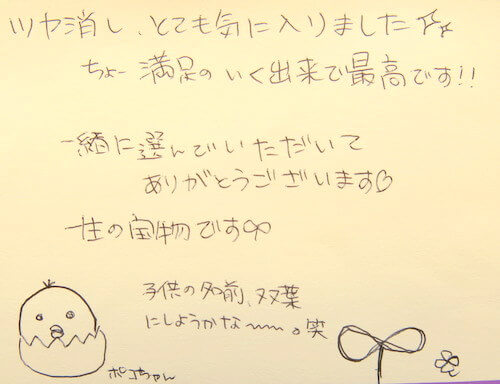 ツヤ消し、とても気に入りました☆
ちょー満足のいく出来で最高です!!
一緒に選んでいただいて
ありがとうございます♡
一生の宝物です
子供の名前、双葉
にしようかな〜〜。笑
ポコちゃん